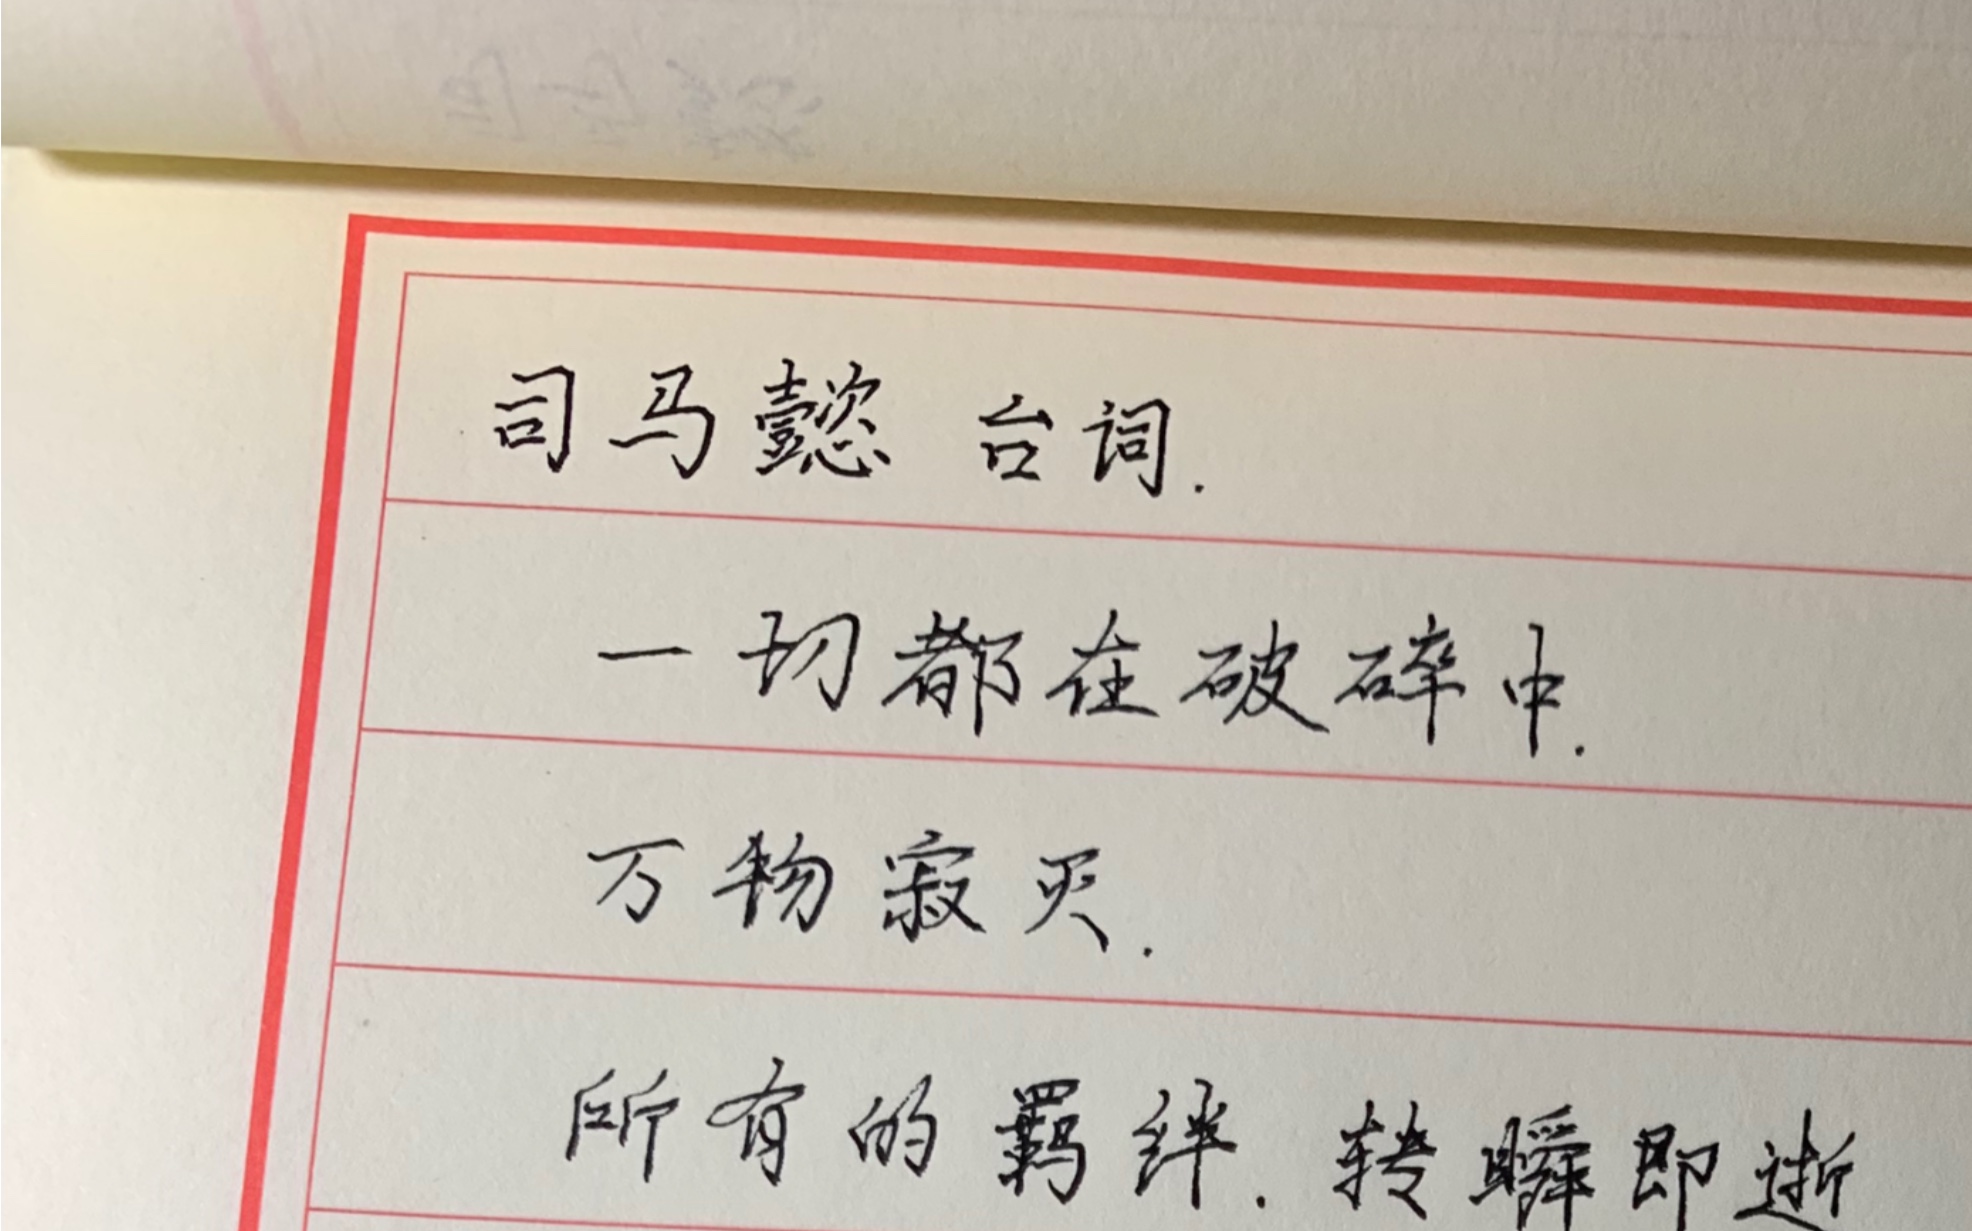 司马懿 台词.
一切都在破碎中.
万物寂灭.
所有的羁绊.转瞬即逝